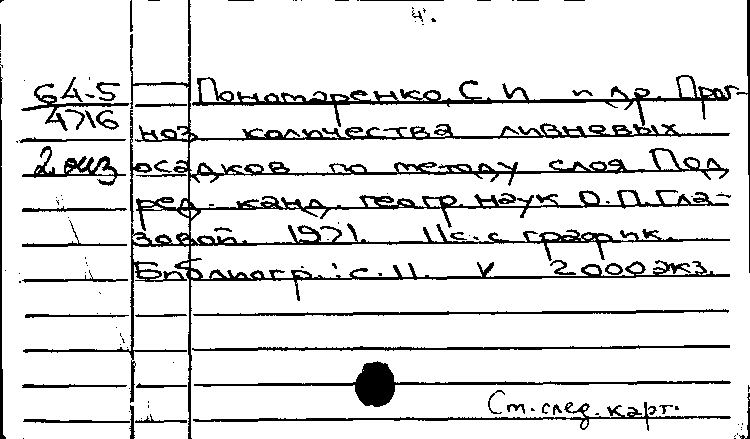 4.
64-5
4716
2 экз
Пономаренко, С. И и др. Прог-
ноз количества ливневых
осадков по методу слоя Под
ред. канд. геогр. наук О. П. Гла-
зовой. 1971. 11 с. с график.
Библиогр.: с. 11. V 2000 экз.
См. след. карт.